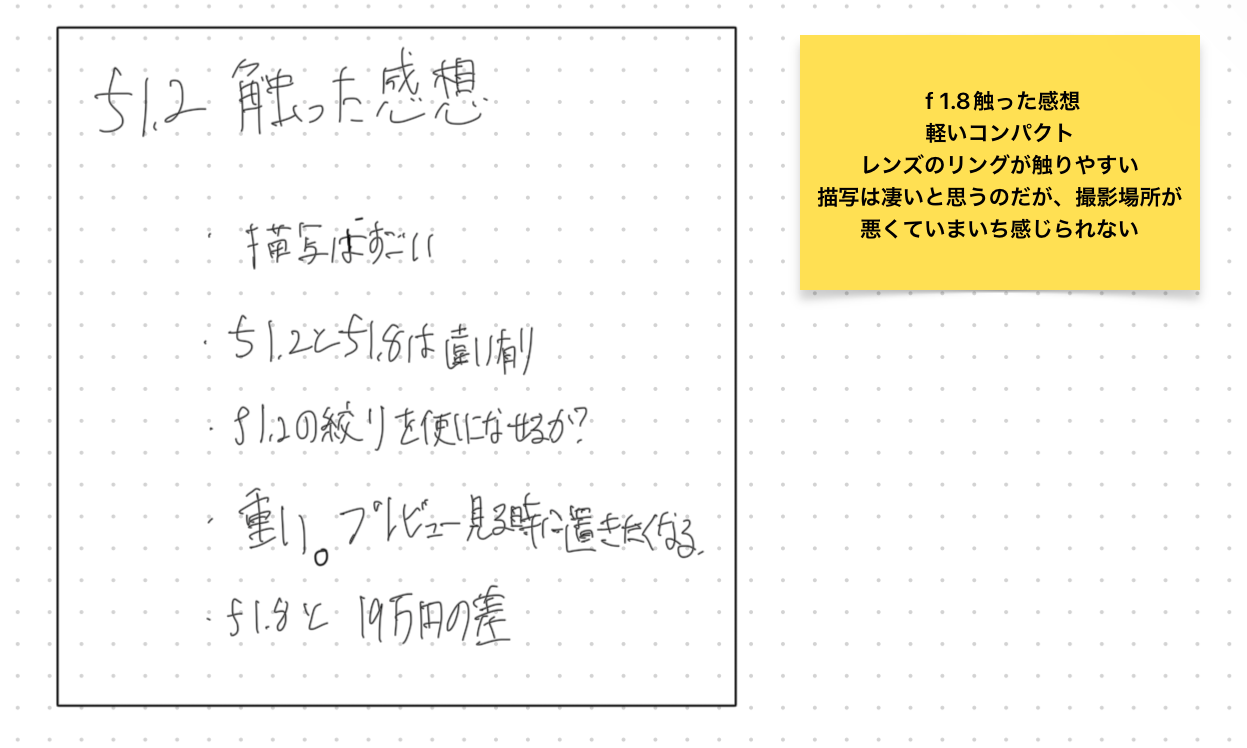 f1.2 触った感想
・描写はすごい
・f1.2とf1.8は違い有り
・f1.2の絞りを使いこなせるか?
・重い。プレビュー見る時に置きたくなる.
・f1.8と 19万円の差
f 1.8 触った感想
軽いコンパクト
レンズのリングが触りやすい
描写は凄いと思うのだが、撮影場所が
悪くていまいち感じられない